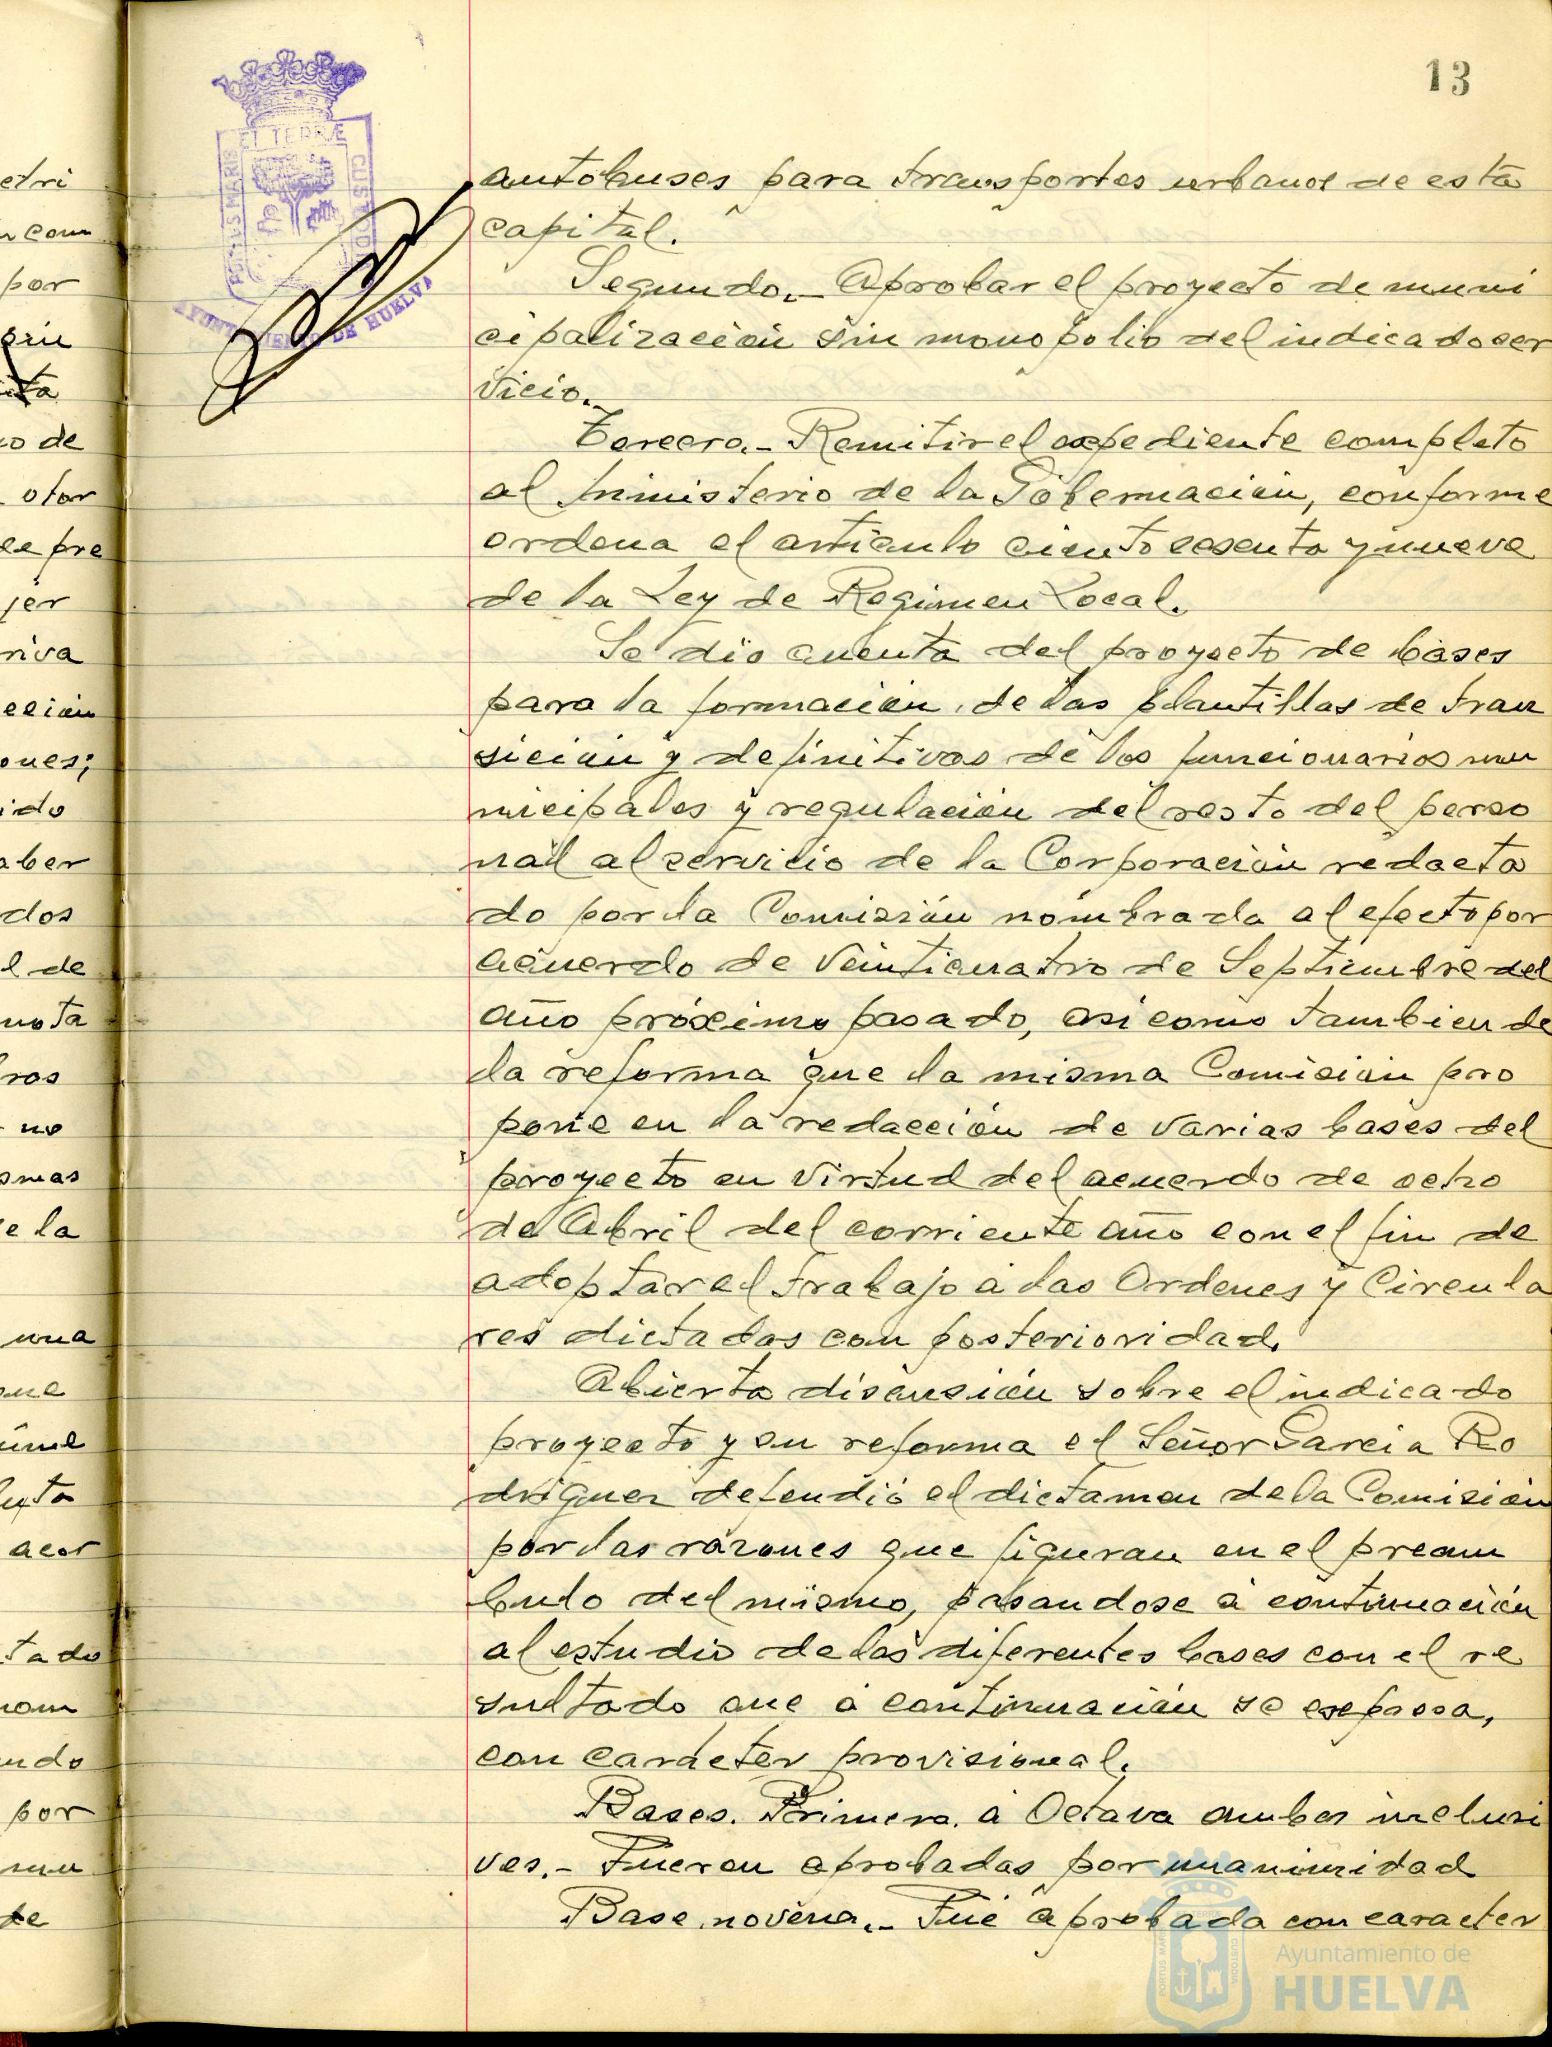 13
ET TERRÆ
PORTUS MARIS
CUSTODIA
AYUNTAMIENTO DE HUELVA
etri
n com
por
prin
ista
co de
otor
de pre
jer
riva
ección
ones;
ido
aber
dos
l de
nota
bros
no
smas
e la
una
que
acor
tado
nom
ando
por
mu
de
autobuses para transportes urbanos de esta
capital.
Segundo.- Aprobar el proyecto de muni
cipalización sin monopolio del indicado ser
vicio.-
Tercero.- Remitir el expediente completo
al Ministerio de la Gobernación, conforme
ordena el articulo ciento sesenta y nueve
de la Ley de Regimen Local.
Se dió cuenta del proyecto de bases
para la formación de las plantillas de tran
sición y definitivas de los funcionarios mu
nicipales y regulación del resto del perso
nal al servicio de la Corporación redacta
do por la Comisión nombrada al efecto por
acuerdo de veinticuatro de Septiembre del
año próximo pasado, asi como tambien de
la reforma que la misma Comisión pro
pone en la redacción de varias bases del
proyecto en virtud del acuerdo de ocho
de Abril del corriente año con el fin de
adoptar el trabajo á las Ordenes y Circula
res dictadas con posterioridad.
Abierta discusión sobre el indicado
proyecto y su reforma el Señor Garcia Ro
driguez defendió el dictamen de la Comisión
por las razones que figuran en el pream
bulo del mismo, pasandose á continuación
al estudio de las diferentes bases con el re
sultado que á continuación se expresa,
con carácter provisional.
Bases. Primera. á Octava ambas inclusi
ves.- Fueron aprobadas por unanimidad
Base novena.- Fué aprobada con caracter
PORTUS MARIS
CUSTODIA
Ayuntamiento de
HUELVA